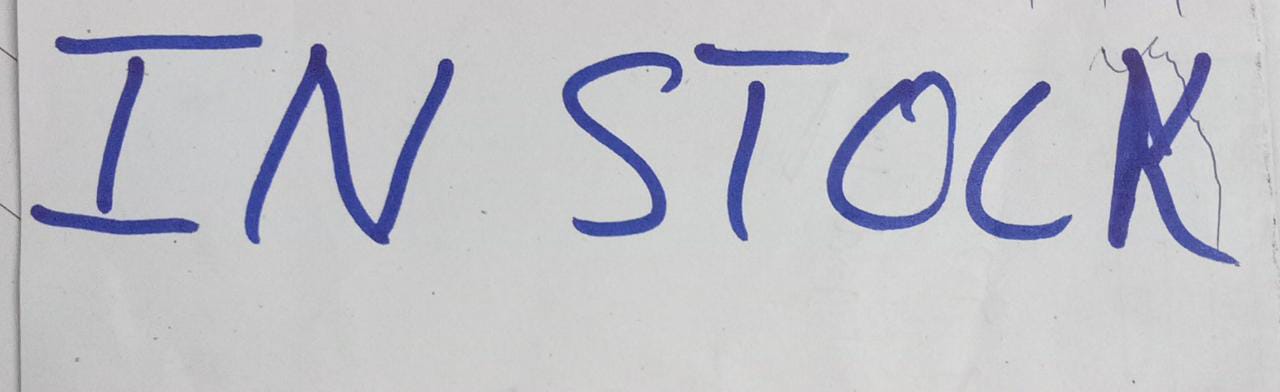 IN STOCK